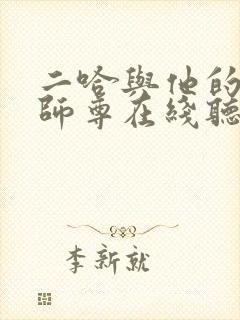 二哈與他的
師尊在綫聽
李新就